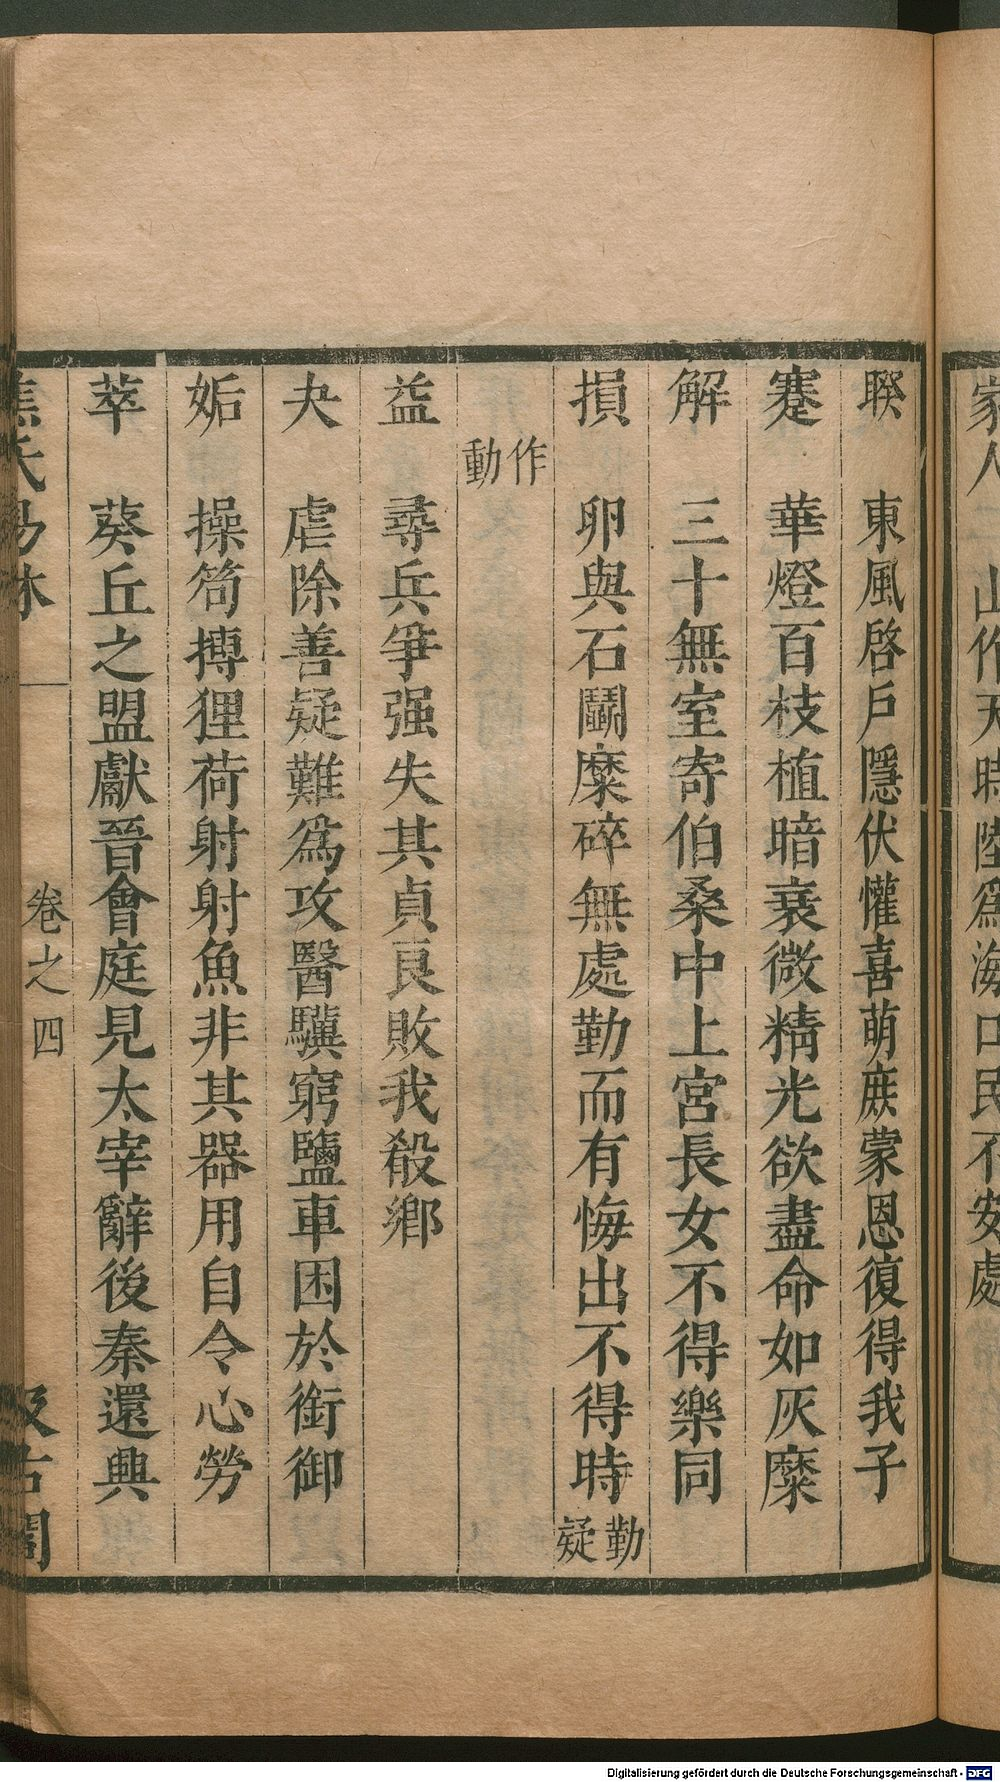 家人 山作天時陸爲海口民不安處
睽 東風啓戶隱伏懽喜萌庶蒙恩復得我子
蹇 華燈百枝植暗衰微精光欲盡命如灰糜
解 三十無室寄伯桑中上宮長女不得樂同
損 卵與石鬭糜碎無處勤而有悔出不得時勤疑
作動
益 尋兵爭强失其貞良敗我殽鄉
夬 虐除善疑難爲攻醫驥窮鹽車困於銜御
姤 操笱搏狸荷射射魚非其器用自令心勞
萃 葵丘之盟獻晉會庭見太宰辭後秦還興
焦氏易林 卷之四 汲古閣
Digitalisierung gefördert durch die Deutsche Forschungsgemeinschaft - DFG